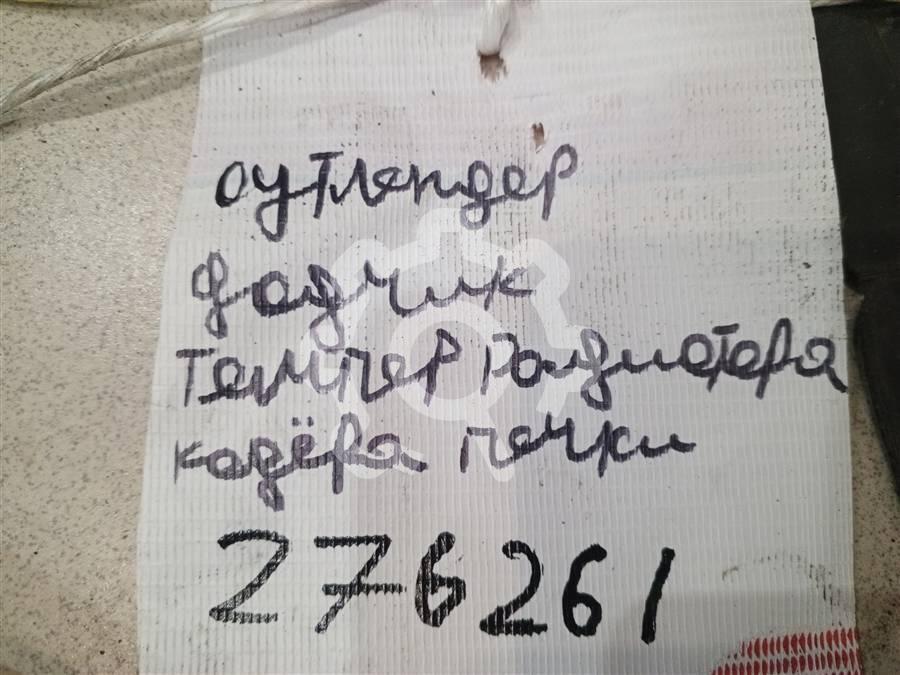 оутлендер
дадчик
темпер радиатора
кадёра печки
276261